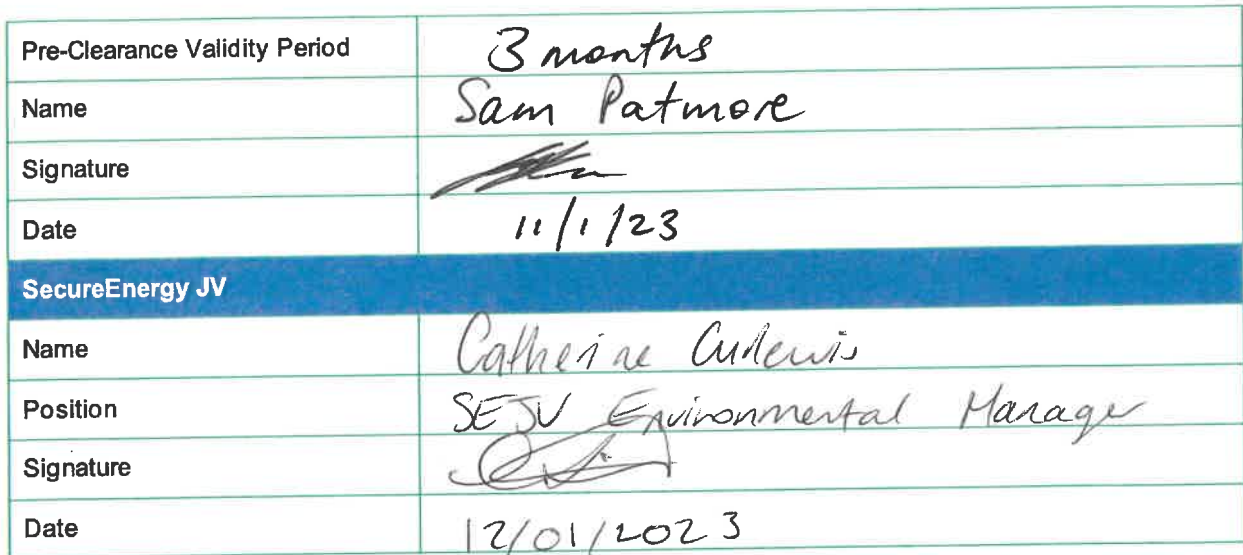 Pre-Clearance Validity Period 3 months
Name Sam Patmore
Signature
Date 11/1/23
SecureEnergy JV
Name Catherine
Position SEJV Environmental Manager
Signature
Date 12/01/2023